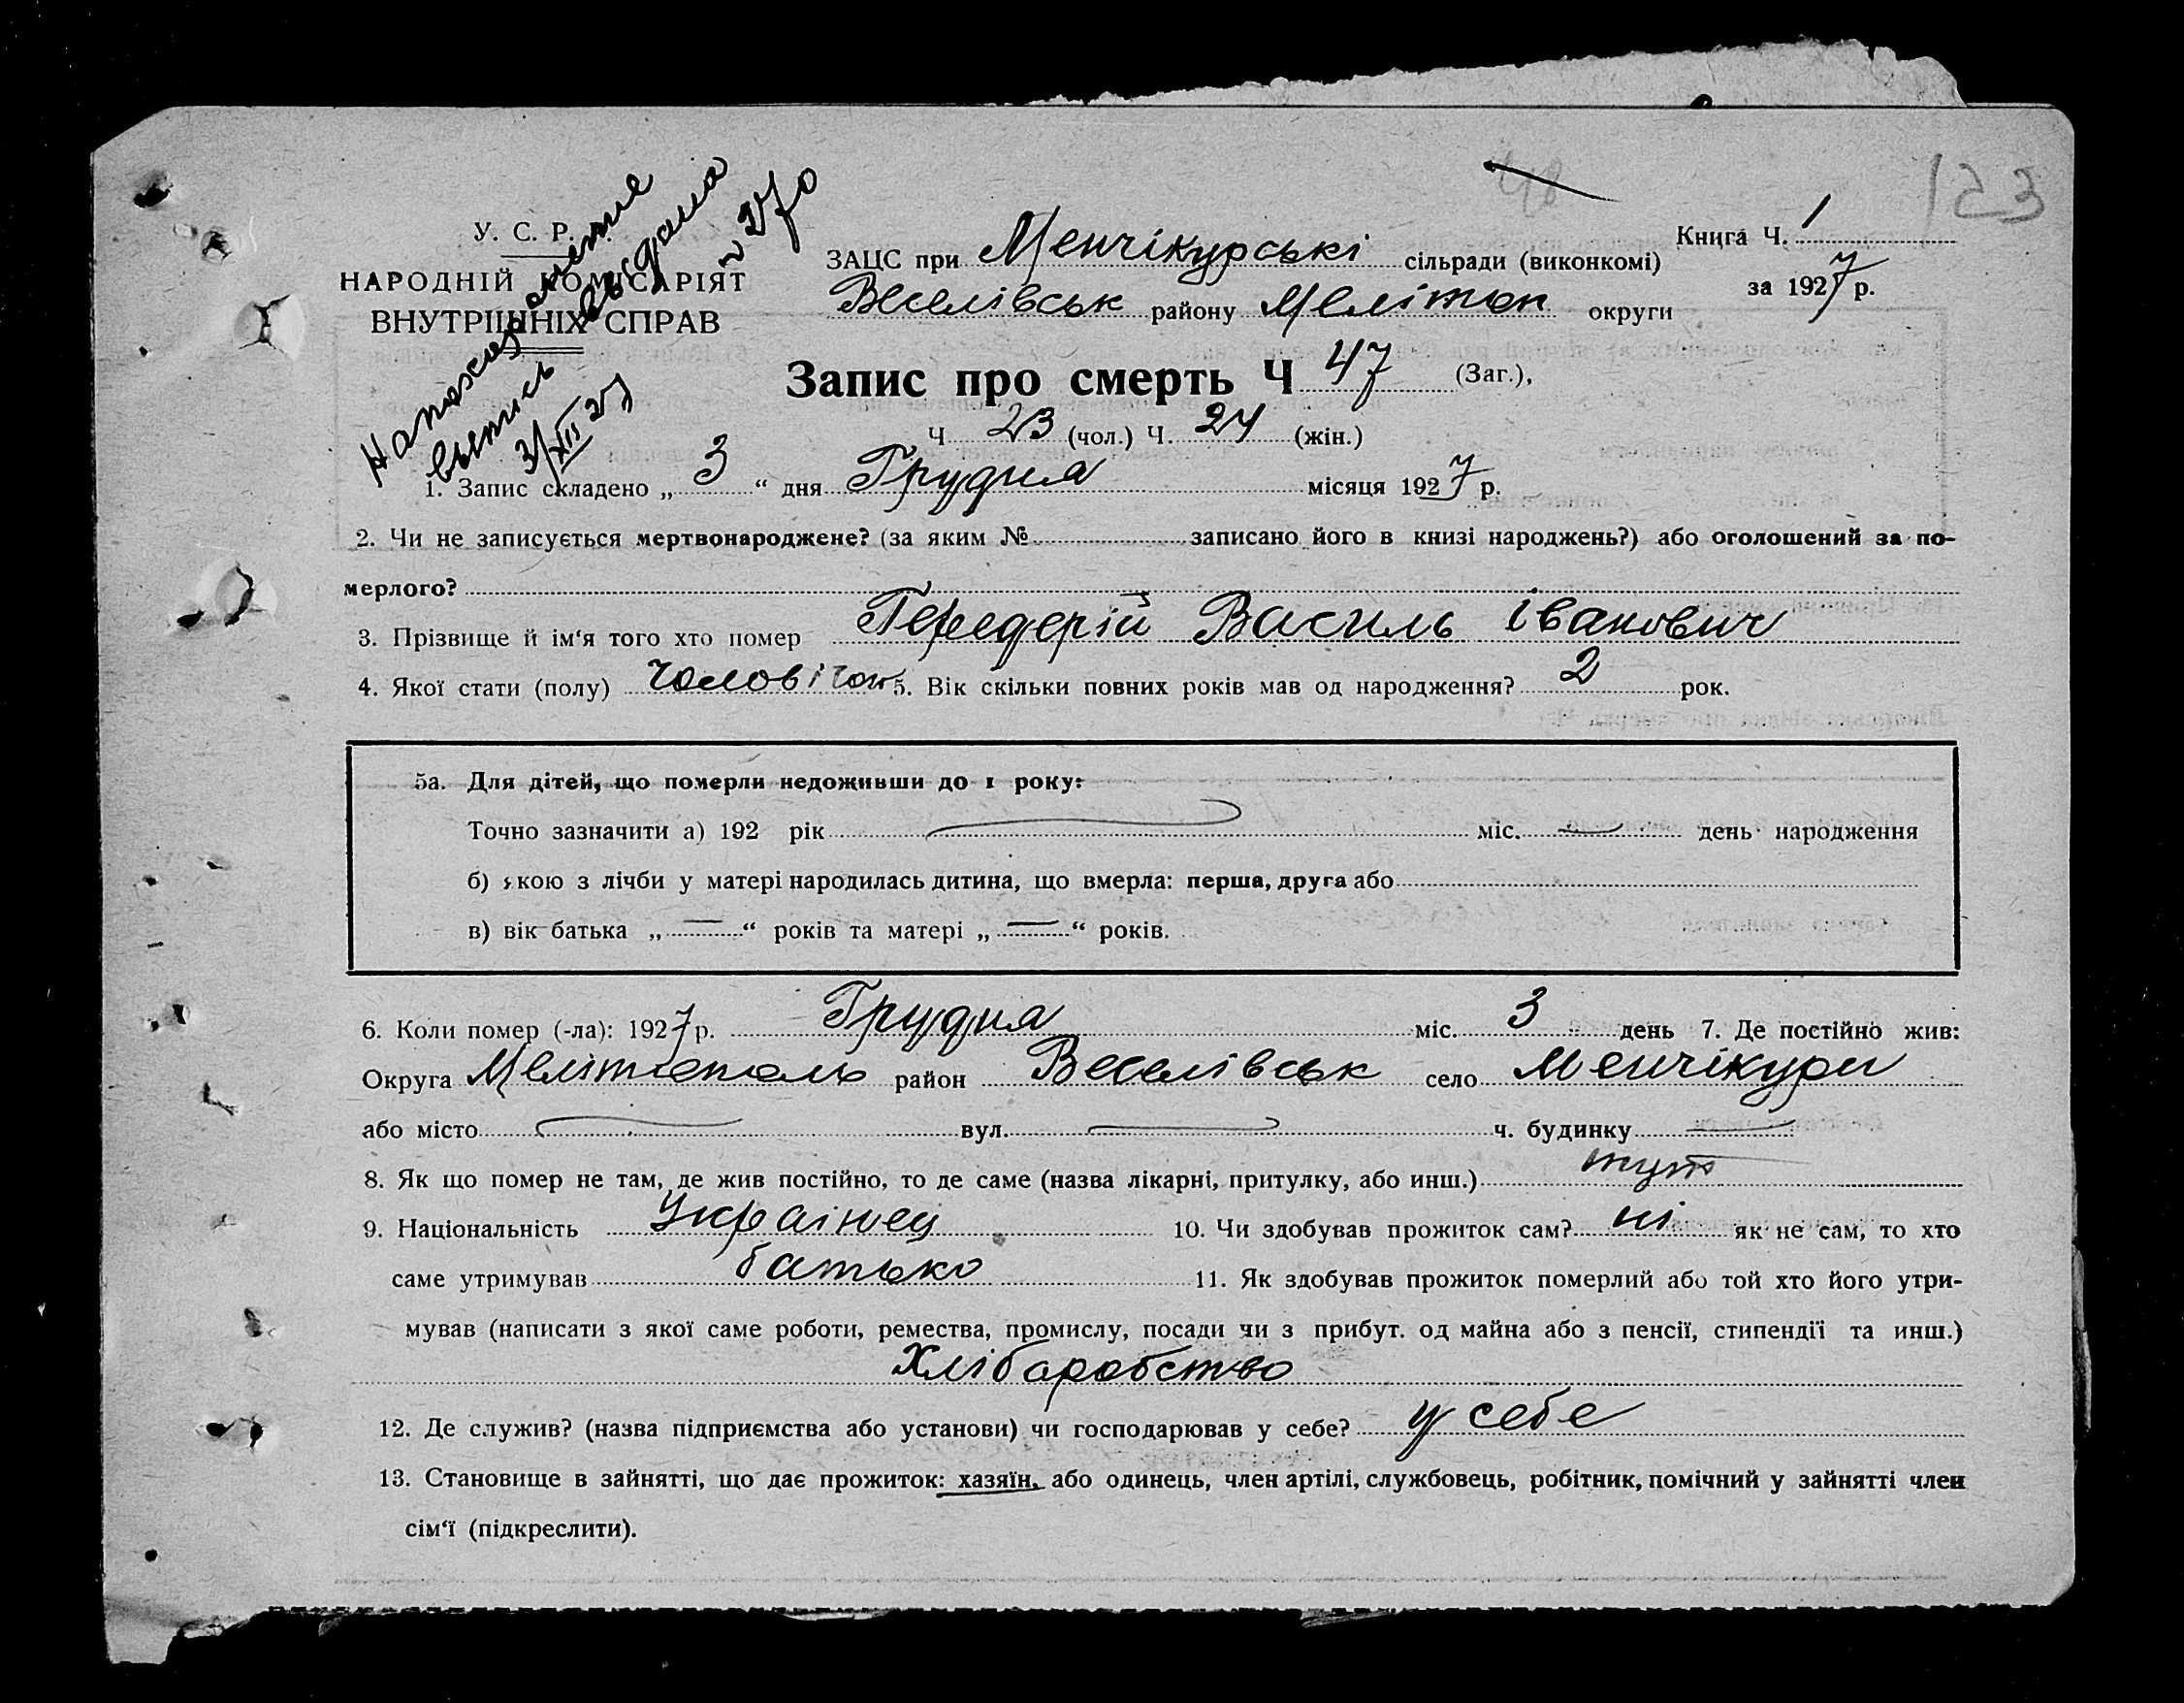 123
48
На похороненые
выпись выдана
3/XII 27
У. С. Р. Р.
НАРОДНІЙ КОМІСАРІЯТ
ВНУТРІШНІХ СПРАВ
Книга Ч. 1
за 1927 р.
ЗАЦС при Менчікурські сільради (виконкомі)
Веселівськ району Мелітоп округи
Запис про смерть Ч 47 (Заг.),
Ч 23 (чол.) Ч. 24 (жін.)
1. Запис складено „ 3 “ дня Грудня місяця 1927 р.
2. Чи не записується мертвонароджене? (за яким № записано його в книзі народжень?) або оголошений за по-
мерлого?
3. Прізвище й ім‘я того хто помер Передерій Василь Іванович
4. Якої стати (полу) 5. Вік скільки повних років мав од народження? 2 рок.
5а. Для дітей, що померли недоживши до 1 року:
Точно зазначити а) 192 рік міс. день народження
б) якою з лічби у матері народилась дитина, що вмерла: перша, друга або
в) вік батька „ — “ років та матері „ — “ років.
6. Коли помер (-ла): 1927 р. Грудня міс. 3 день 7. Де постійно жив:
Округа Мелітополь район Веселівськ село Менчікури
або місто вул. ч. будинку
8. Як що помер не там, де жив постійно, то де саме (назва лікарні, притулку, або инш.) тут
9. Національність Українец 10. Чи здобував прожиток сам? ні як не сам, то хто
саме утримував батько 11. Як здобував прожиток померлий або той хто його утри-
мував (написати з якої саме роботи, ремества, промислу, посади чи з прибут. од майна або з пенсії, стипендії та инш.)
Хлібаробство
12. Де служив? (назва підприємства або установи) чи господарював у себе? у себе
13. Становище в зайнятті, що дає прожиток: хазяїн, або одинець, член артілі, службовець, робітник, помічний у зайнятті член
сім‘ї (підкреслити).